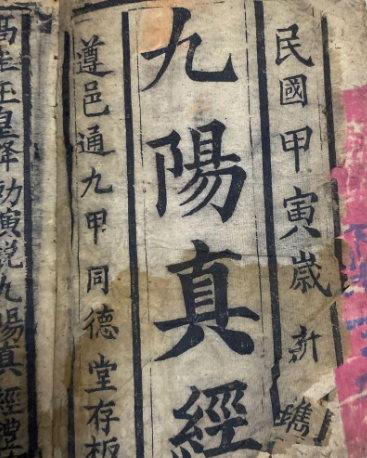 民國甲寅歲新鐫
九陽真經
遵邑通九甲同德堂存板
高主玉皇降勅演說九陽真經禮